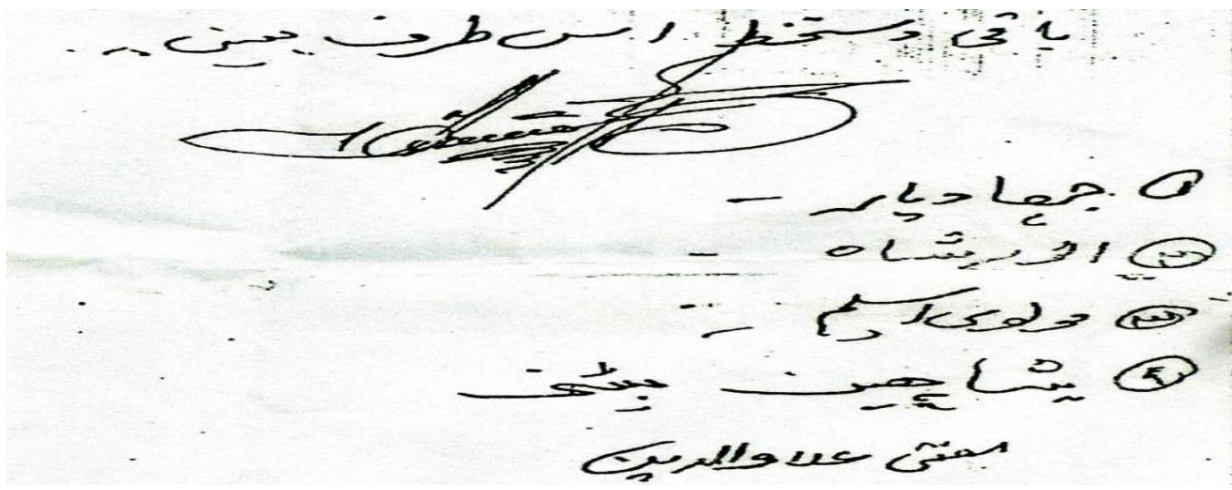 باقی دستخط اس طرف ہیں۔
① جہادیار -
② انور شاہ -
③ مولوی اسلم -
④ شاہین
مفتی علاوالدین